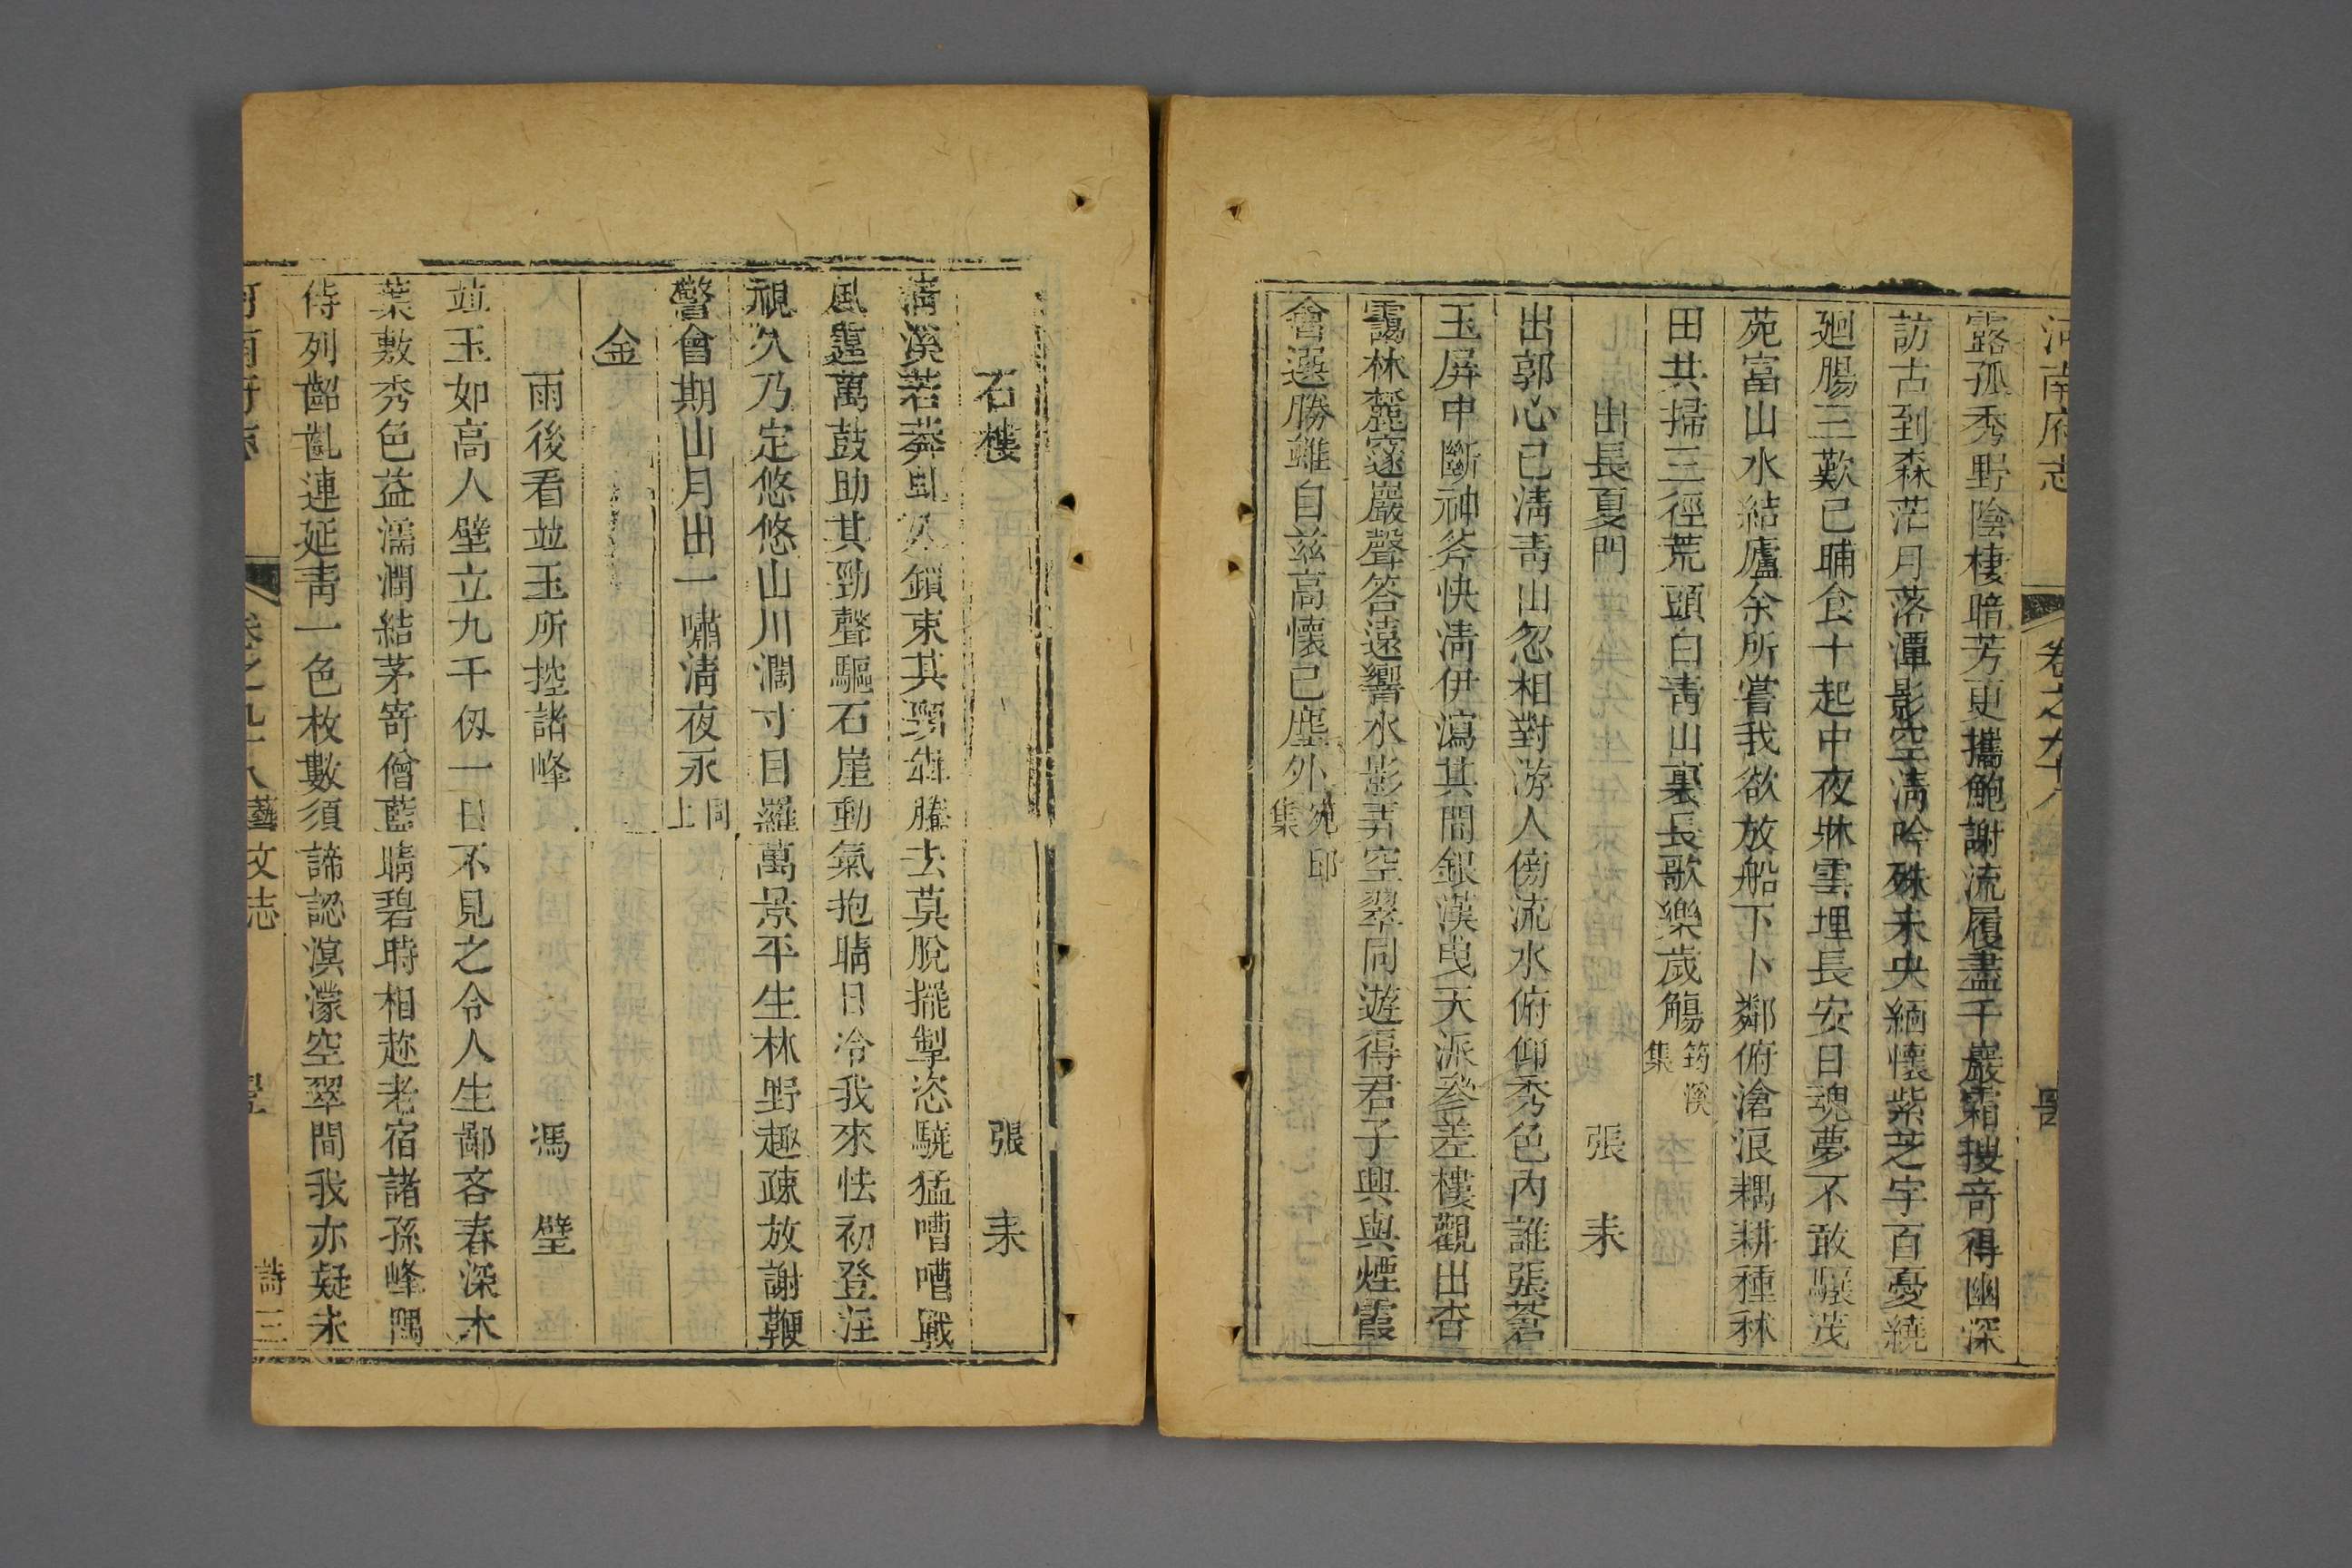 河南府志 卷之九十八
露孤秀野陰棲暗芳更攜鮑謝流履盡千巖霜搜奇得幽深
訪古到森茫月落潭影空清吟殊未央緬懷紫芝宇百憂繞
廻腸三歎已晡食十起中夜牀雲埋長安日魂夢不敢驤茂
苑富山水結廬余所嘗我欲放船下卜鄰俯滄浪耦耕種秫
田共掃三徑荒頭白青山裏長歌樂歲觴 筠溪集
出長夏門 張耒
出郭心已清青山忽相對游人傍流水俯仰秀色內誰張蒼
玉屏中斷神斧快清伊瀉其間銀漢曳天派參差樓觀出杳
靄林麓邃巖聲答遠響水影弄空翠同遊得君子興與煙霞
會選勝雖自茲高懷已塵外 宛邱集
石樓 張耒
清溪若莽虬久鎖束其頸犇騰去莫脫擺掣恣驍猛嘈嘈戰
風霆萬鼓助其勁聲驅石崖動氣抱晴日冷我來怯初登注
視久乃定悠悠山川濶寸目羅萬景平生林野趣疎放謝鞭
警會期山月出一嘯清夜永 同上
金
雨後看並玉所控諸峰 馮璧
並玉如高人壁立九千仭一日不見之令人生鄙吝春深木
葉敷秀色益濡潤結茅寄僧藍晴碧時相趂老宿諸孫峰隅
侍列齠齓連延青一色枚數須諦認溟濛空翠間我亦疑未
河南府志 卷之九十八 藝文志 詩三